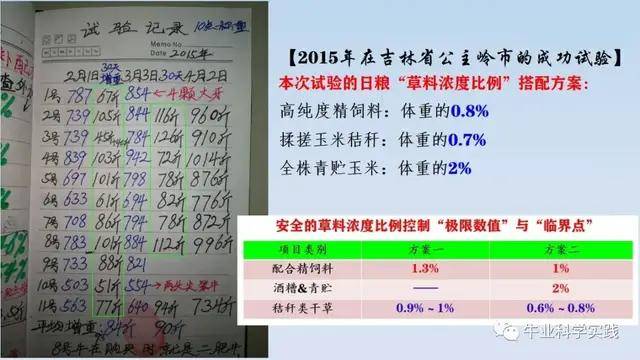 试验记录 10点-称重
Memo No.
Date 2015年
2月1日 30天增重 3月3日 30天 4月2日
1号 787 67斤 854 ←4颗大牙
2号 739 105斤 844 116斤 960斤
3号 739 45斤 784 126斤 910斤
4号 839 103斤 942 72斤 1014斤
5号 697 101斤 798 78斤 876斤
6号 633 61斤 694 82斤 776斤
7号 708 86斤 794 78斤 872斤
8号 783 101斤 884 112斤 996斤
9号 733 88斤 821
10号 503 51斤 554
11号 563 77斤 640 94斤 734斤
平均增重:84斤 90斤
8号牛在购买时就是二肥牛
【2015年在吉林省公主岭市的成功试验】
本次试验的日粮“草料浓度比例”搭配方案:
高纯度精饲料:体重的0.8%
揉搓玉米秸秆:体重的0.7%
全株青贮玉米:体重的2%
安全的草料浓度比例控制“极限数值”与“临界点”
项目类别 方案一 方案二
配合精饲料 1.3% 1%
酒糟&青贮 —— 2%
秸秆类干草 0.9%~1% 0.6%~0.8%
牛业科学实践